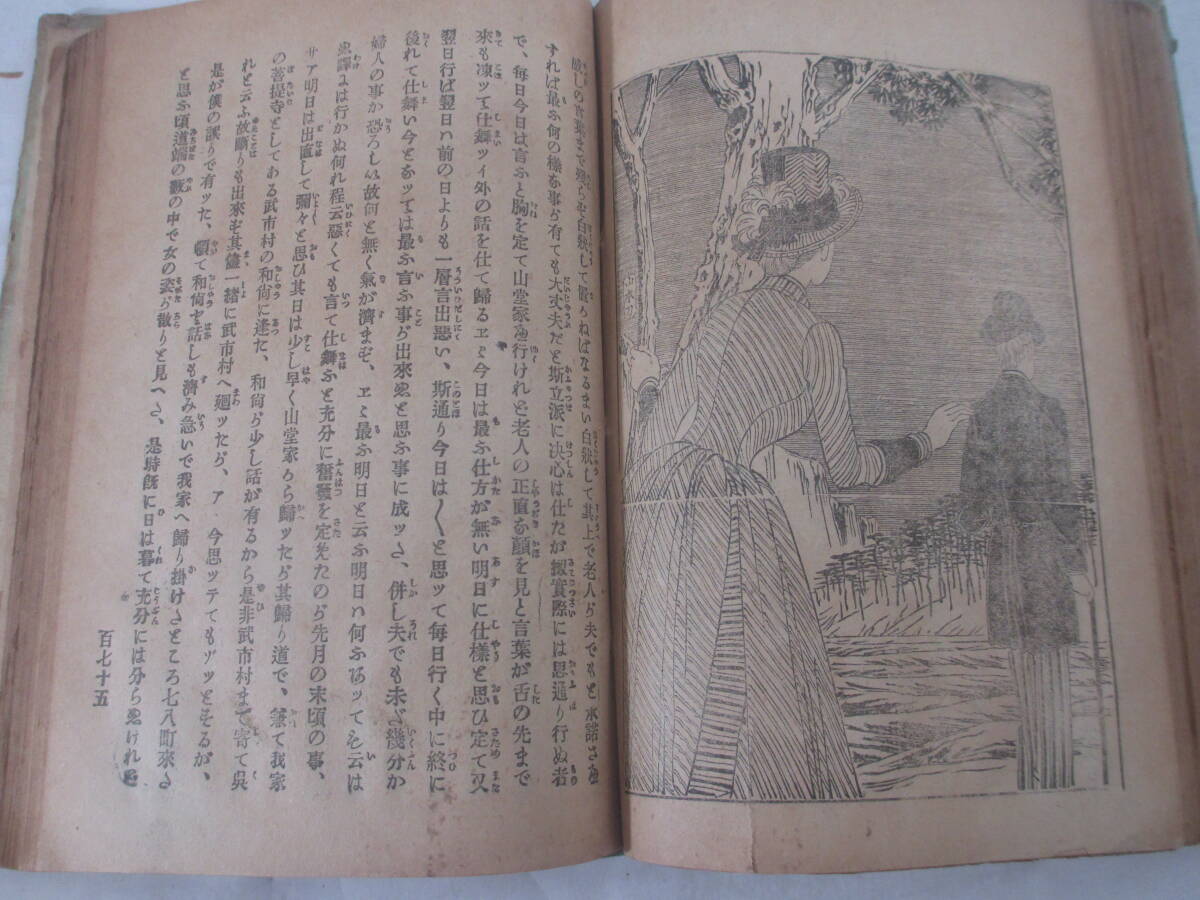 すれば最ふ何の様な事が有ても大丈夫だと斯立派に決心は仕たが扨實際には思通り行ぬ者
で、毎日今日は言ふと胸を定て山堂家へ行けれど老人の正直な顔を見と言葉が舌の先まで
來も凍ッて仕舞ッイ外の話を仕て歸るエヽ今日は最ふ仕方が無い明日に仕様と思ひ定て又
翌日行ば翌日は前の日よりも一層言出惡い、斯通り今日は〳〵と思ッて毎日行く中に終に
後れて仕舞い今となッては最ふ言ふ事が出來ぬと思ふ事に成ッた、併し夫でも未だ幾分か
婦人の事か恐ろしい故何と無く氣が濟まぬ、エヽ最ふ明日と云ふ明日は何ふ有ッても云は
ぬ譯には行かぬ何れ程云惡くても言て仕舞ふと充分に奮發を定めたのが先月の末頃の事、
サア明日は出直して彌々と思ひ其日は少し早く山堂家から歸ッたが其歸り道で、兼て我家
の菩提寺としてある武市村の和尚に逢た、和尚が少し話が有るから是非武市村まで寄て呉
れと云ふ故斷りも出來ず其儘一緒に武市村へ廻ッたが、ア、今思ッテもゾッとするが、
是が僕の誤りで有ッた、頓て和尚と話しも濟み急いで我家へ歸り掛けたところ七八町來た
と思ふ頃道端の藪の中で女の姿が散りと見へた、是時既に日は暮て充分には分らぬけれど
百七十五